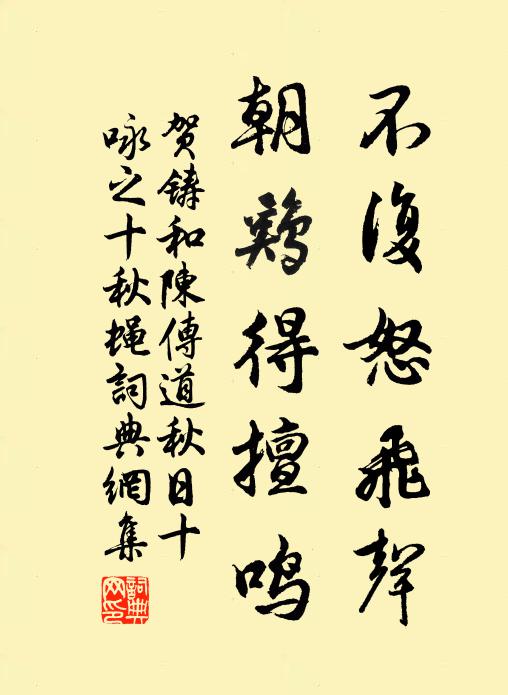 不復怒飛聲
朝鷄得擅鳴
賀鑄和陳傳道秋日十
咏之十秋蝇詞典網集